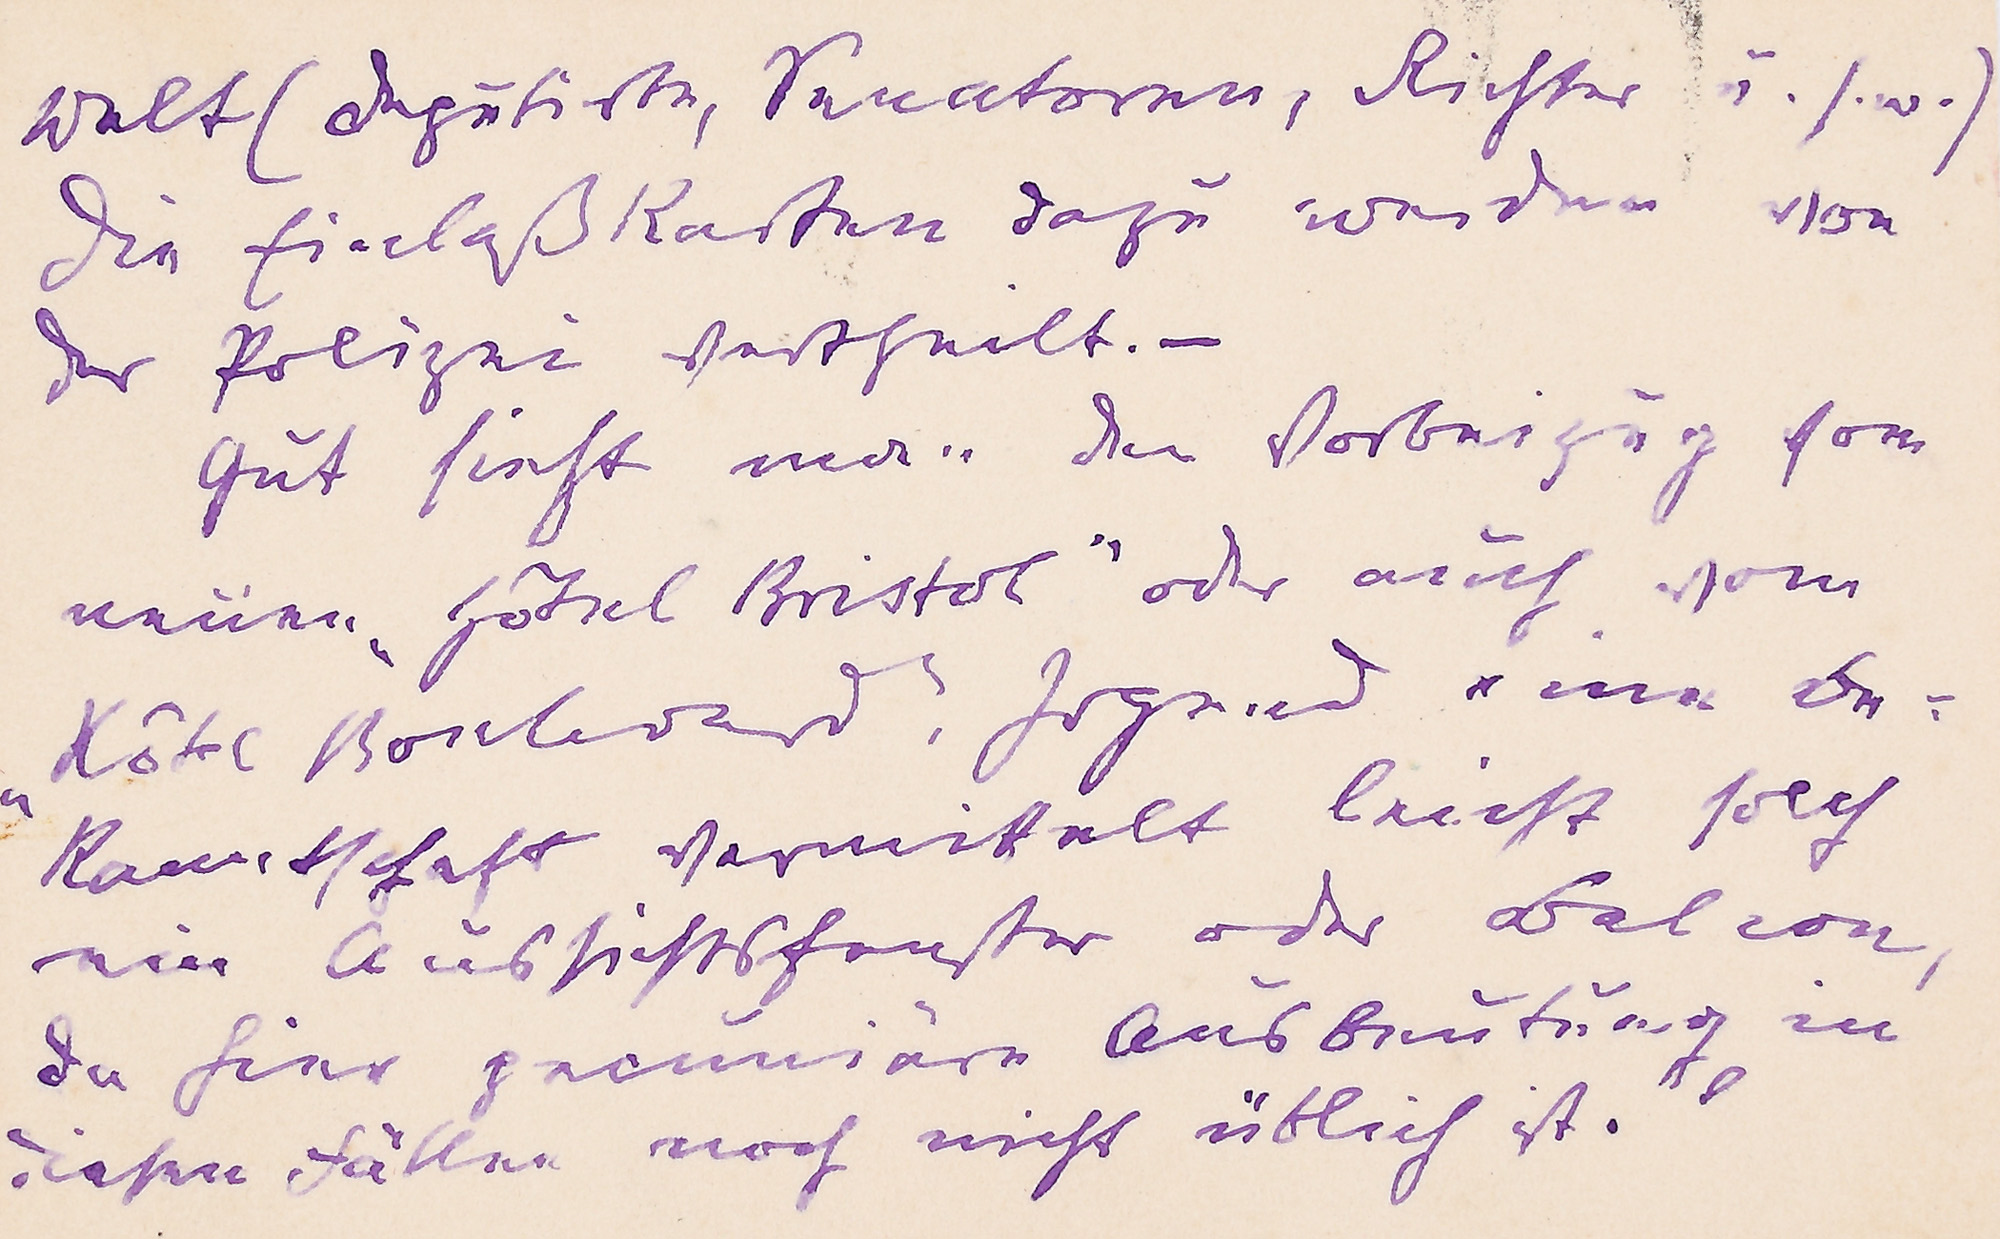 Welt (Deputirte, Senatoren, Richter u. s. w.)
Die Einlaßkarten dazu werden von
der Polizei vertheilt. —
Gut sieht man den Vorbeizug vom
neuen „Hôtel Bristol" oder auch vom
„Hôtel Boulevard". Irgend eine Be-
kanntschaft vermittelt leicht solch
ein Aussichtsfenster oder Balcon,
da hier pecuniäre Ausbeutung in
diesen Fällen noch nicht üblich ist.